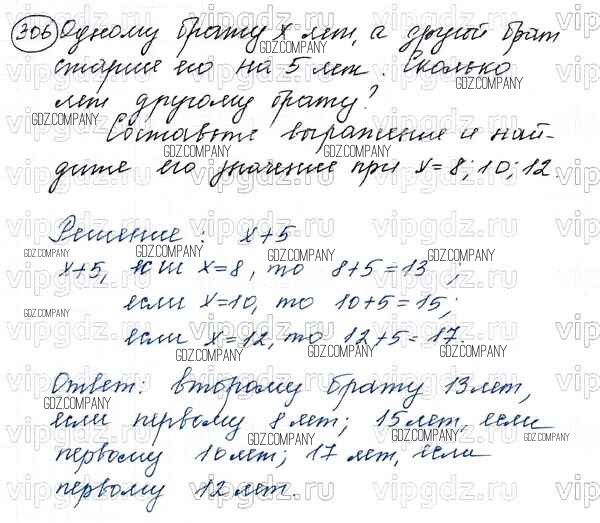 306 Одному брату x лет, а другой брат
старше его на 5 лет. Сколько
лет другому брату?
Составьте выражение и най-
дите его значение при x=8; 10; 12.
Решение: x+5
x+5, если x=8, то 8+5=13;
если x=10, то 10+5=15;
если x=12, то 12+5=17.
Ответ: второму брату 13 лет,
если первому 8 лет; 15 лет, если
первому 10 лет; 17 лет, если
первому 12 лет.